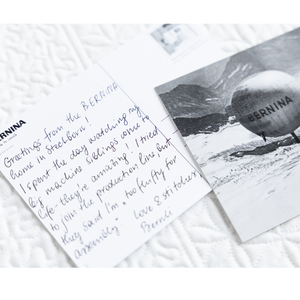 BERNINA
Greetings from the BERNINA
home in Steckborn!
I spent the day watching my
big machine siblings come to
life - they're amazing! I tried
to join the production line, but
they said I'm "too fluffy for
assembly".
Love & stitches
Berni
BERNINA